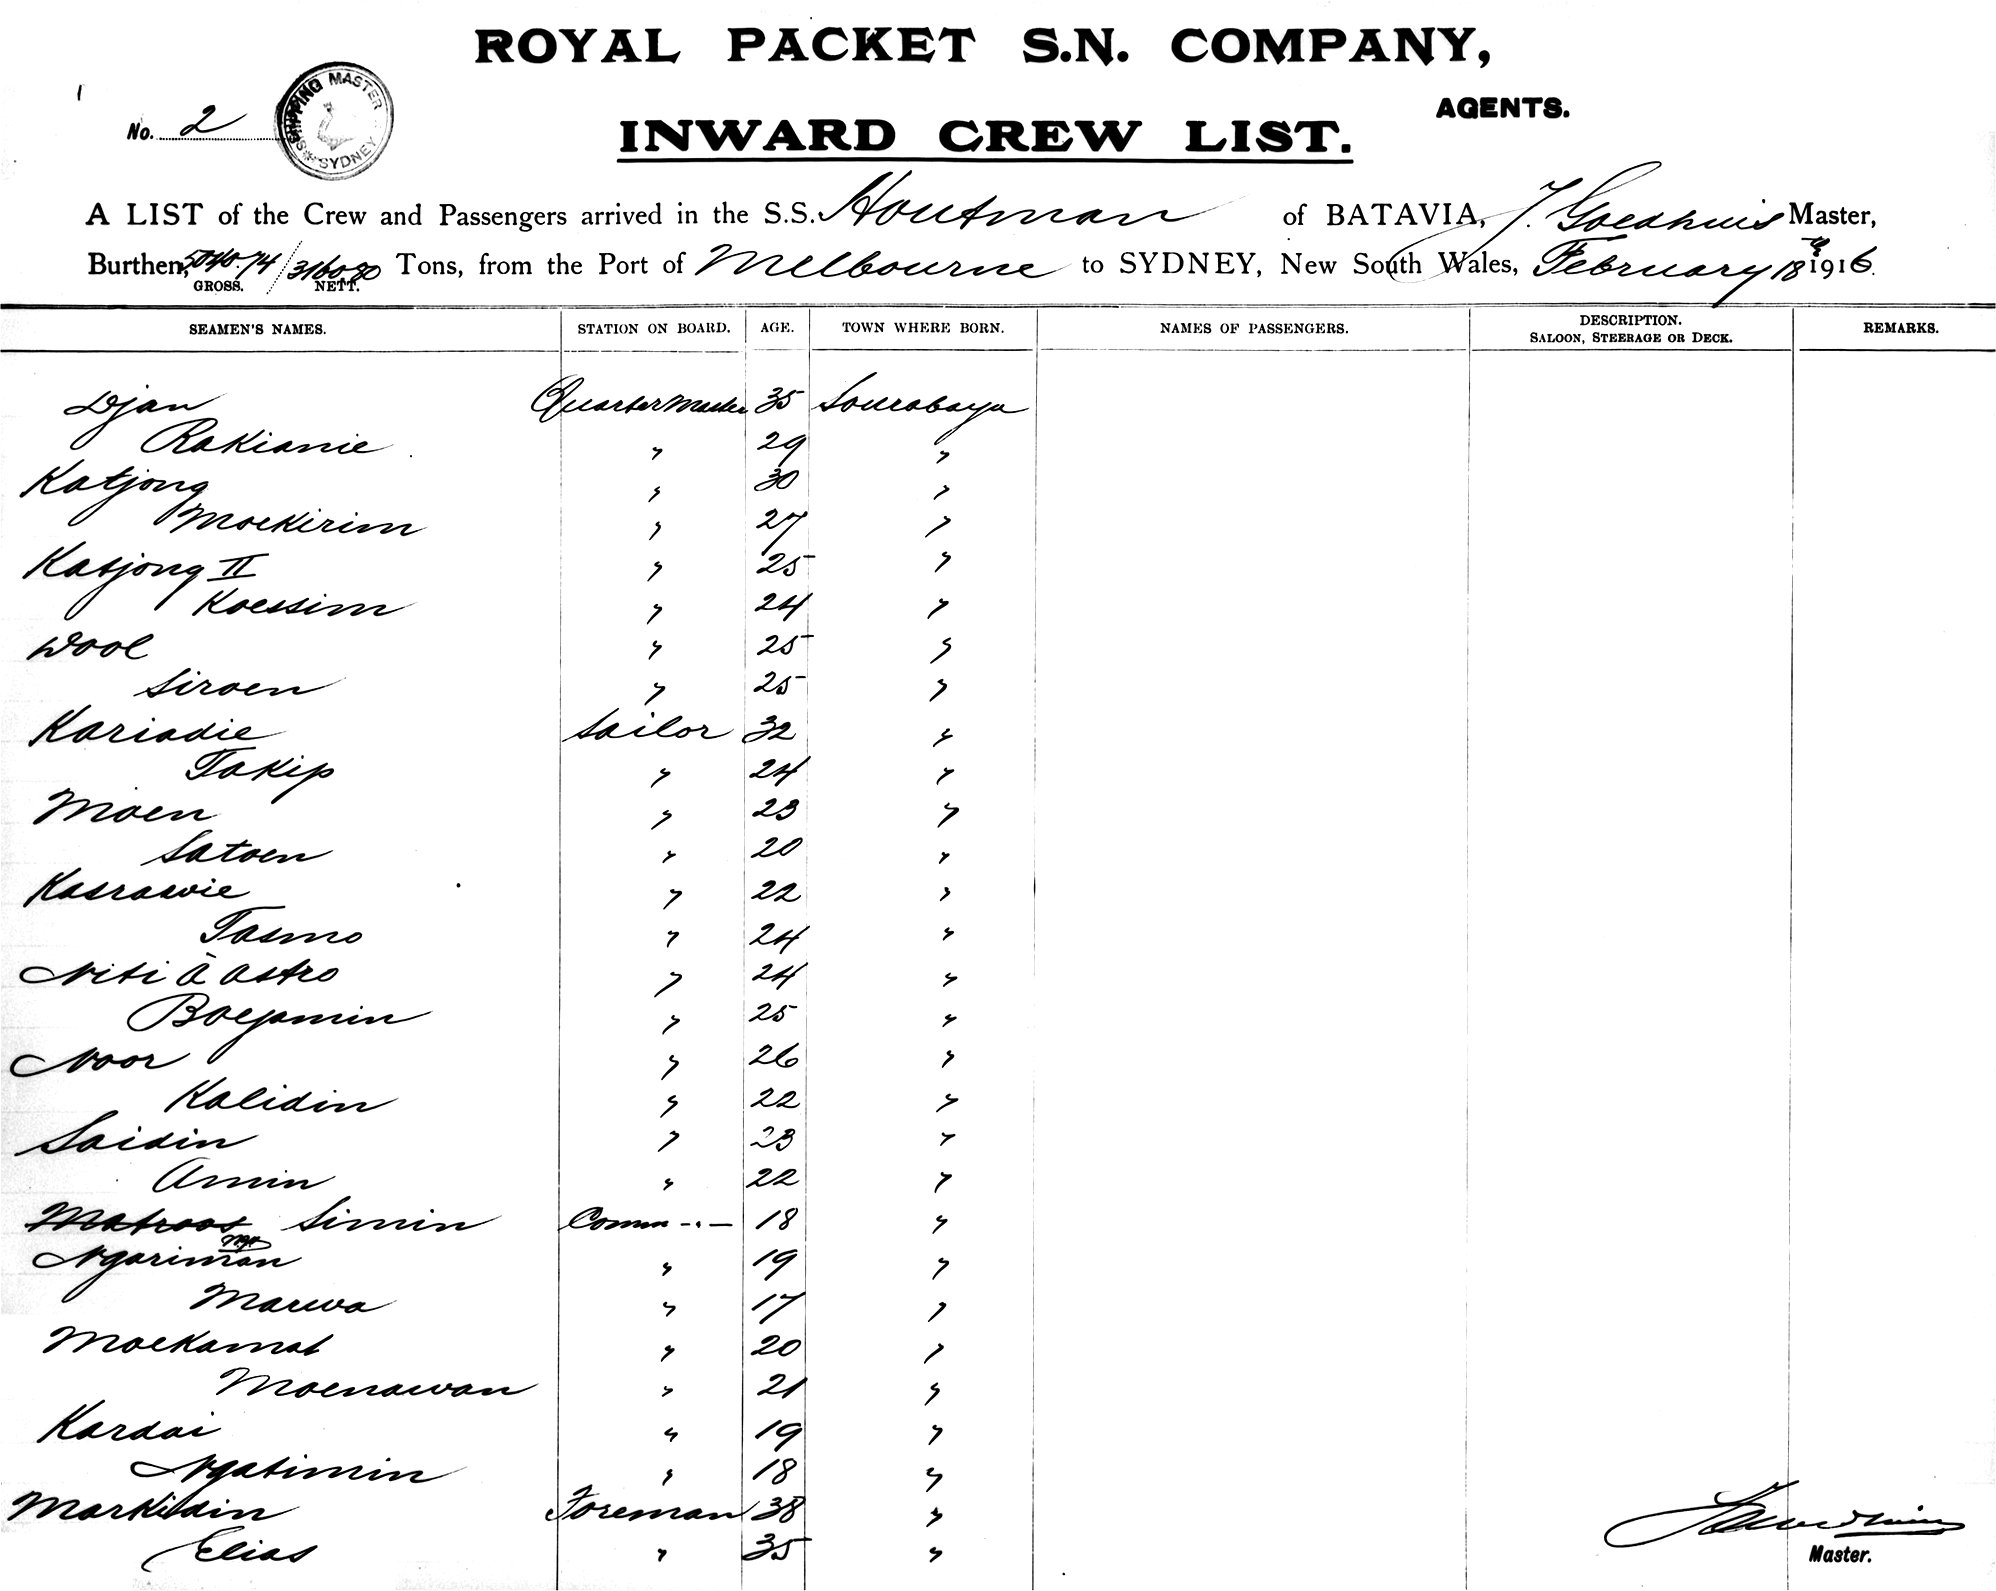 ROYAL PACKET S.N. COMPANY,
AGENTS.
No. 2
SHIPPING MASTER SYDNEY
INWARD CREW LIST.
A LIST of the Crew and Passengers arrived in the S.S. Houtman of BATAVIA, J. Goedhuis Master,
Burthen, 5040.74 / 3160.80 Tons, from the Port of Melbourne to SYDNEY, New South Wales, February 18th 1916.
GROSS. NETT.
SEAMEN'S NAMES. STATION ON BOARD. AGE. TOWN WHERE BORN. NAMES OF PASSENGERS. DESCRIPTION. SALOON, STEERAGE OR DECK. REMARKS.
Djan QuarterMaster 35 Sourabaya
Rakianie " 29 "
Katjong " 30 "
Moekirim " 27 "
Katjong II " 25 "
Koessim " 24 "
Dool " 25 "
Siroen " 25 "
Kariadie Sailor 32 "
Takip " 24 "
Moen " 23 "
Satoen " 20 "
Kasrawie " 22 "
Tasmo " 24 "
Niti à Astro " 24 "
Boejamin " 25 "
Noor " 26 "
Kalidin " 22 "
Saidin " 23 "
Amin " 22 "
Matroos Simin Comm -.- 18 "
Ngariman " 19 "
Marwa " 17 "
Moekamat " 20 "
Moenawan " 21 "
Kardai " 19 "
Ngatimin " 18 "
Markidin Foreman 38 "
Elias " 35 "
Master.